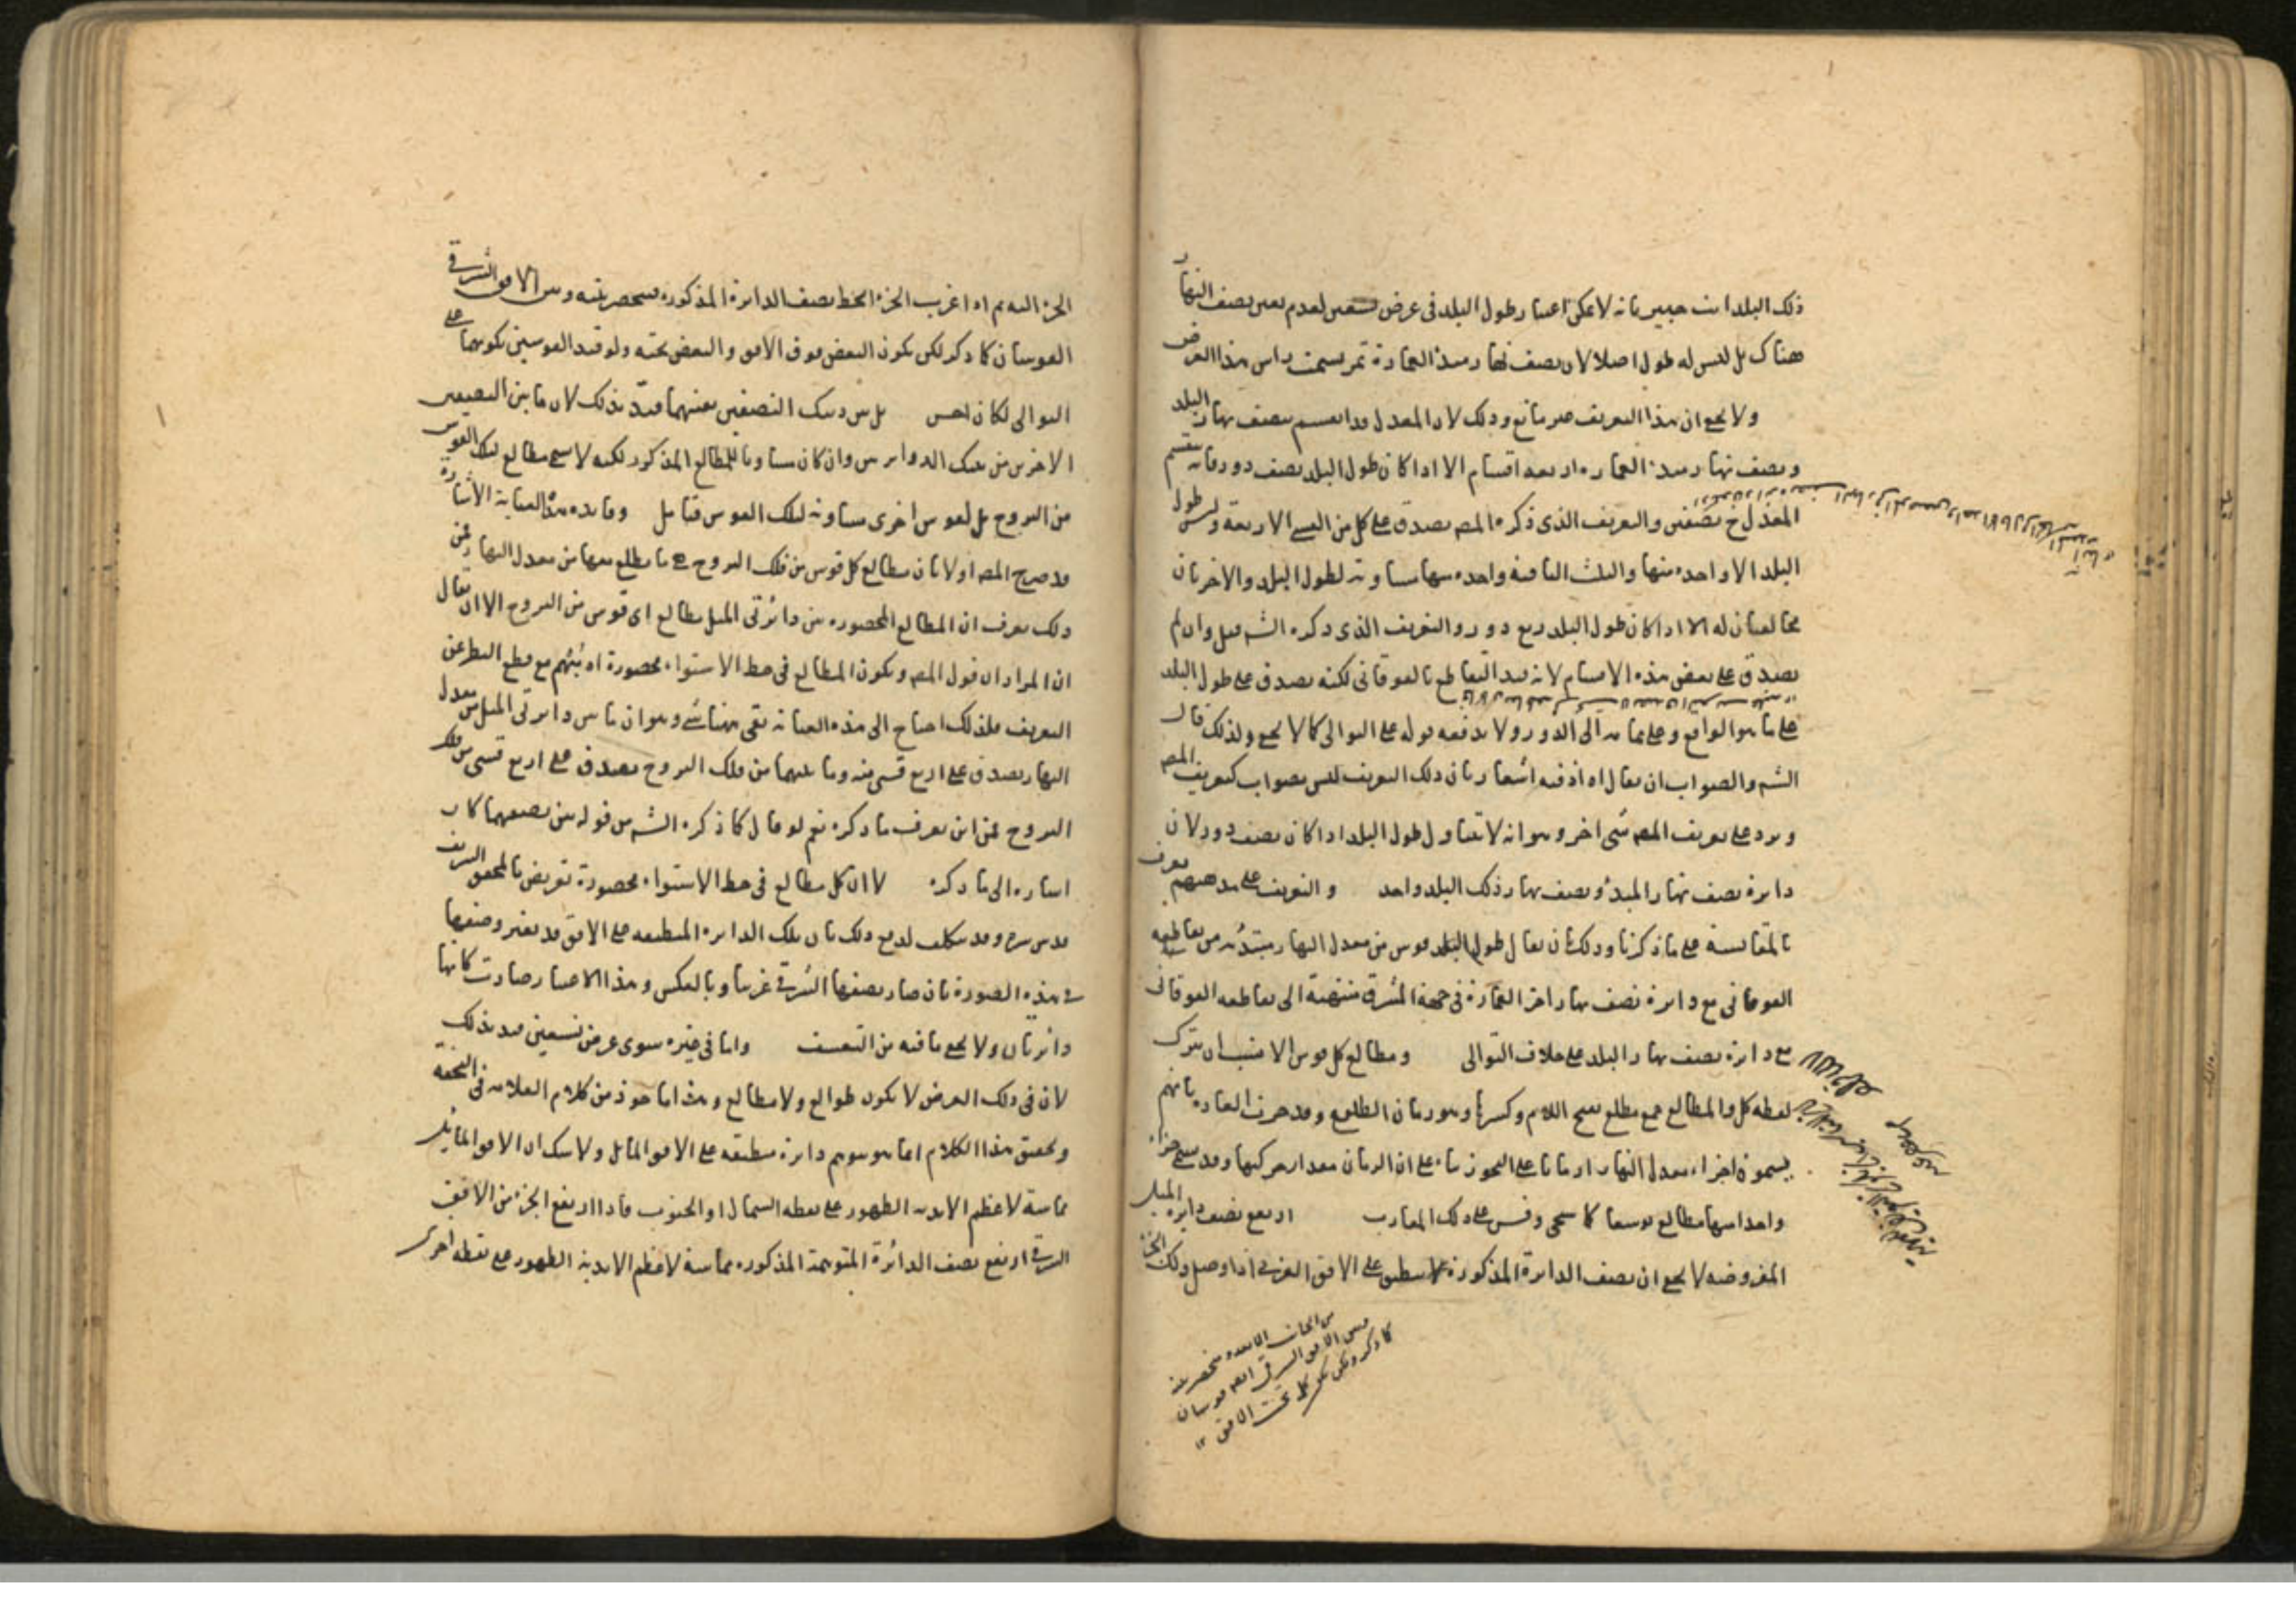 ذلك البلد انت خبير بانه لا يمكن اعتبار طول البلد فى عرض تسعين لعدم تعين نصف النهار
هناك بل ليس له طول اصلا لان نصف نهار مبدأ العمارة تمر بسمت راس هذا العرض
ولا يخفى ان هذا التعريف غير مانع وذلك لان المعدل قد انقسم بنصف نهار البلد
وبنصف نهار مبدأ العمارة اربعة اقسام الا اذا كان طول البلد نصف دور فانه ينقسم
المعدل ح بنصفين والتعريف الذى ذكره المصـ يصدق على كل من القسى الاربعة وليس طول
البلد الا واحدة منها والثلث الباقية واحدة منها مساوية لطول البلد والاخريان
مخالفتان له الا اذا كان طول البلد ربع دور والتعريف الذى ذكره الشـ قيل وان لم
يصدق على بعض هذه الاقسام لانه قيد التقاطع بالفوقانى لكنه يصدق على طول البلد
على ما هو الواقع وعلى تمامه الى الدور ولا يدفعه قوله على التوالى كما لا يخفى ولذلك قال
الشـ والصواب ان يقال اه اذ فيه اشعار بان ذلك التعريف ليس بصواب كتعريف المصـ
ويرد على تعريف المصـ شى اخر وهو انه لا يتناول طول البلد اذا كان نصف دور لان
دايرة نصف نهار المبدأ ونصف نهار ذلك البلد واحد والتعريف على مذهبهم يعرف
بالمقايسة على ما ذكرنا وذلك بان يقال طول البلد قوس من معدل النهار مبتدئه من تقاطعه
الفوقانى مع دايرة نصف نهار اخر العمارة فى جهة المشرق منتهية الى تقاطعه الفوقانى
مع دايرة نصف نهار البلد على خلاف التوالى ومطالع كل قوس الانسب ان يترك
لفظة كل والمطالع جمع مطلع بفتح اللام وكسرها وهو زمان الطلوع وقد جرت العادة بانهم
يسمون اجزاء معدل النهار ازمانا على التجوز بناء على ان الزمان مقدار حركتها وقد يسمى جزء
واحد منها مطالع توسعا كما سيجى وقس على ذلك المغارب ارتفع نصف دايرة الميل
المفروضة لا يخفى ان نصف الدايرة المذكورة لا ينطبق على الافق الغربى اذا وصل ذلك الجزء
كما ذكر ولكن يكون كل تحت الافق ١٢
الجزء اليه ثم اذا غرب الجزء انحط نصف الدايرة المذكورة فينحصر بينه وبين الافق الشرقى
القوسان كما ذكر لكن يكون البعض فوق الافق والبعض تحته ولو قيد القوسين بكونهما على
التوالى لكان احسن بل بين ذينك النصفين بعينهما قيد بذلك لان ما بين النصفين
الاخرين من تلك الدوايرين وان كان مساويا للمطالع المذكور لكنه لا يسمى مطالع لتلك القوس
من البروج بل لقوس اخرى مساوية لتلك القوس فتامل وفايده هذه العناية الاشارة
قد صرح المصـ اولا بان مطالع كل قوس من فلك البروج هى ما يطلع معها من معدل النهار فمن
ذلك يعرف ان المطالع المحصورة بين دائرتى الميل مطالع اى قوس من البروج الا ان يقال
ان المراد ان قول المصـ ويكون المطالع فى خط الاستواء محصورة اه يتم مع قطع النظر عن
التعريف فلذلك احتاج الى هذه العناية بقى هنا شى وهو ان ما بين دايرتى الميل من معدل
النهار يصدق على اربع قسى منه وما بينهما من فلك البروج يصدق على اربع قسى من فلك
البروج فمن اين يعرف ما ذكره نعم لو قال كما ذكره الشـ من قوله بين نصفيهما كان
اشارة الى ما ذكره لا ان كل مطالع فى خط الاستواء محصورة تعريض بالمحقق الشريف
قدس سره وقد يتكلف لدفع ذلك بان تلك الدايرة المنطبقة على الافق قد تغير وضعها
فى هذه الصورة بان صار نصفها الشرقى غربيا وبالعكس وبهذا الاعتبار صارت كانها
دائرتان ولا يخفى ما فيه من التعسف واما فى غيره سوى عرض تسعين قيد بذلك
لان فى ذلك العرض لا يكون طوالع ولا مطالع وهذا ماخوذ من كلام العلامة فى التحفه
وتحقيق هذا الكلام انما هو بتوهم دايرة منطبقة على الافق المائل ولا شك ان الافق المايل
مماسة لاعظم الابدية الظهور على نقطة الشمال او الجنوب فاذا ارتفع الجزء من الافق
الشرقى ارتفع نصف الدائرة المتوهمة المذكورة مماسة لاعظم الابدية الظهور مع نقطة اخرى